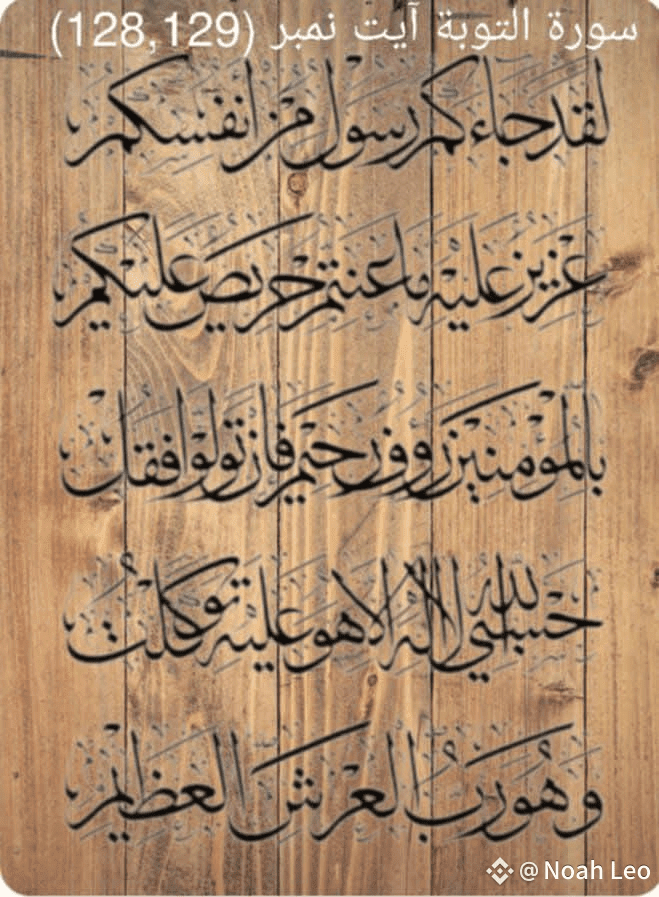 سورة التوبة آيت نمبر (128,129)
لقد جاءكم رسول من أنفسكم
عزيز عليه ما عنتم حريص عليكم
بالمؤمنين رءوف رحيم فإن تولوا فقل
حسبي الله لا إله إلا هو عليه توكلت
وهو رب العرش العظيم
@Noah Leo